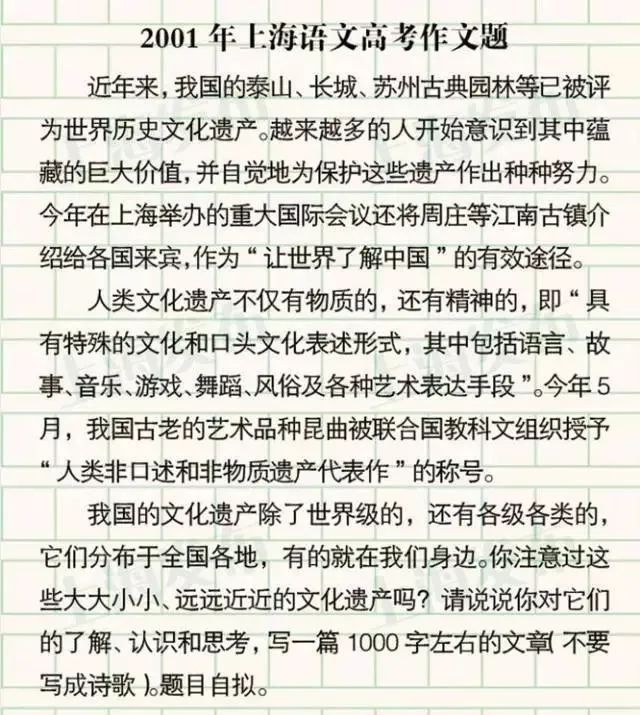 2001 年上海语文高考作文题
近年来，我国的泰山、长城、苏州古典园林等已被评
为世界历史文化遗产。越来越多的人开始意识到其中蕴
藏的巨大价值，并自觉地为保护这些遗产作出种种努力。
今年在上海举办的重大国际会议还将周庄等江南古镇介
绍给各国来宾，作为“让世界了解中国”的有效途径。
人类文化遗产不仅有物质的，还有精神的，即“具
有特殊的文化和口头文化表述形式，其中包括语言、故
事、音乐、游戏、舞蹈、风俗及各种艺术表达手段”。今年 5
月，我国古老的艺术品种昆曲被联合国教科文组织授予
“人类非口述和非物质遗产代表作”的称号。
我国的文化遗产除了世界级的，还有各级各类的，
它们分布于全国各地，有的就在我们身边。你注意过这
些大大小小、远远近近的文化遗产吗？请说说你对它们
的了解、认识和思考，写一篇 1000 字左右的文章（不要
写成诗歌）。题目自拟。
上海发布
上海发布
上海发布
上海发布
上海发布
上海发布